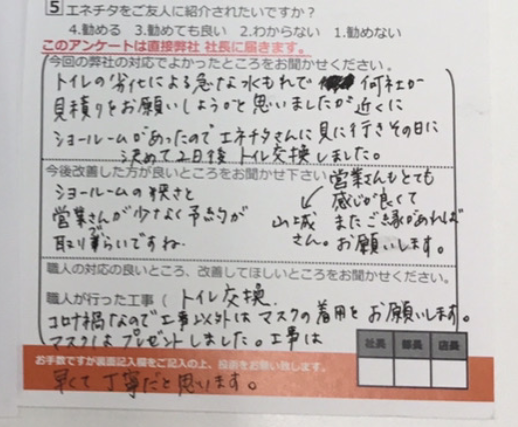 5 エネチタをご友人に紹介されたいですか？
4.勧める 3.勧めても良い 2.わからない 1.勧めない
このアンケートは直接弊社 社長に届きます。
今回の弊社の対応でよかったところをお聞かせください。
トイレの劣化による急な水もれで 何社か
見積りをお願いしようかと思いましたが近くに
ショールームがあったのでエネチタさんに見に行きその日に
決めて2日後 トイレ交換しました。
今後改善した方が良いところをお聞かせ下さい。
ショールームの狭さと
営業さんが少なく予約が
取りづらいですね
営業さんもとても
感じが良くて
またご縁があれば
お願いします。
山城
さん。
職人の対応の良いところ、改善してほしいところをお聞かせください。
職人が行った工事（ トイレ交換
コロナ禍なので工事以外はマスクの着用をお願いします。
マスクはプレゼントしました。工事は
早くて丁寧だと思います。
社長 部長 店長
お手数ですが裏面記入欄をご記入の上、投函をお願い致します。